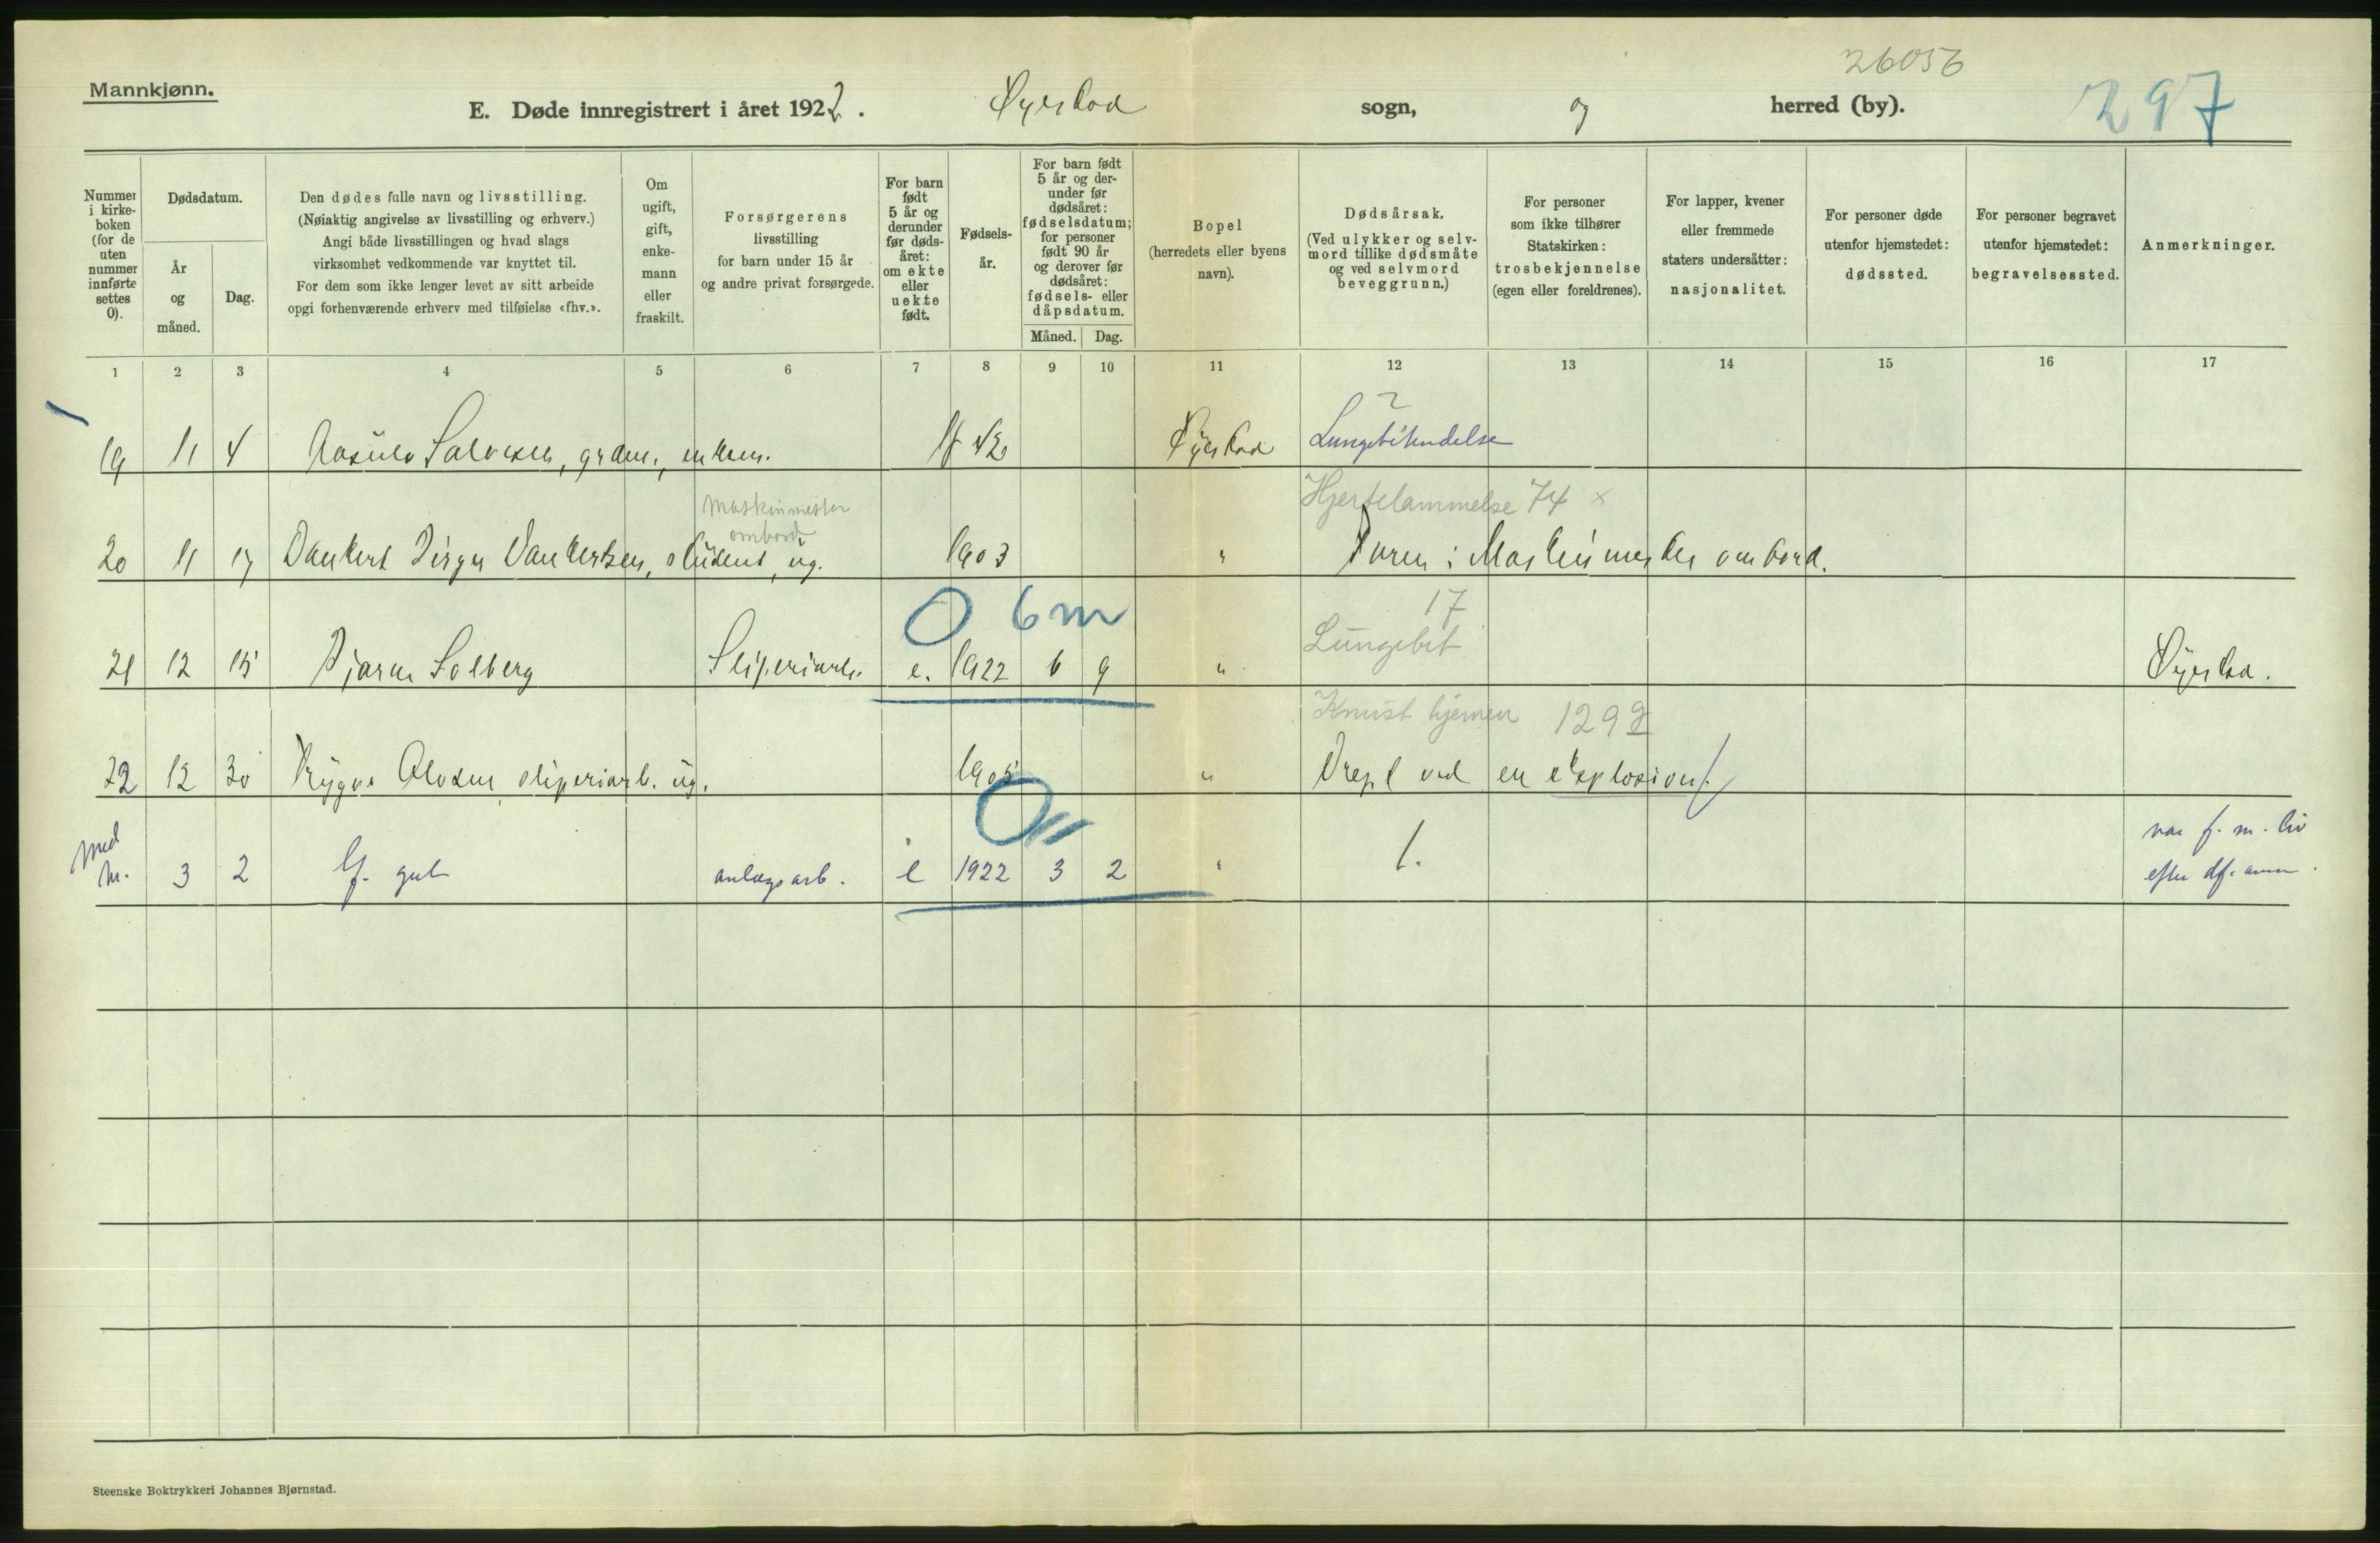 26056
297
Mannkjønn.
E. Døde innregistrert i året 1922. Øyestad sogn, og herred (by).
Nummer i kirkeboken (for de uten nummer innførte settes 0).
Dødsdatum.
År og måned.
Dag.
Den dødes fulle navn og livsstilling.
(Nøiaktig angivelse av livsstilling og erhverv.)
Angi både livsstillingen og hvad slags
virksomhet vedkommende var knyttet til.
For dem som ikke lenger levet av sitt arbeide
opgi forhenværende erhverv med tilføielse «fhv.».
Om ugift, gift, enkemann eller fraskilt.
Forsørgerens
livsstilling
for barn under 15 år
og andre privat forsørgede.
For barn født 5 år og derunder før dødsåret: om ekte eller uekte født.
Fødselsår.
For barn født 5 år og derunder før dødsåret: fødselsdatum; for personer født 90 år og derover før dødsåret: fødsels- eller dåpsdatum.
Måned. Dag.
Bopel
(herredets eller byens
navn).
Dødsårsak.
(Ved ulykker og selvmord tillike dødsmåte og ved selvmord beveggrunn.)
For personer
som ikke tilhører
Statskirken:
trosbekjennelse
(egen eller foreldrenes).
For lapper, kvener
eller fremmede
staters undersåtter:
nasjonalitet.
For personer døde
utenfor hjemstedet:
dødssted.
For personer begravet
utenfor hjemstedet:
begravelsessted.
Anmerkninger.
1 2 3 4 5 6 7 8 9 10 11 12 13 14 15 16 17
19 11 4 Salvesen, enkem. 42 Øyestad Lungebetendelse
Maskinmester
ombord
Hjertelammelse 74 x
20 11 17 Dankert Dankertsen, student, ug. 1903 "  Faren: Maskinmester ombord.
0 6m
17
Lungebet
21 12 15 Bjarne Solberg Sliperiarb. e. 1922 6 9 " Øyestad.
Knust hjernen 129
22 12 30 Trygve Olvsen sliperiarb. ug. 1905 " Drept ved en eksplosion.
0
Med
m. 3 2 gut anlægsarb. e 1922 3 2 " 1. var f. m. liv
efter df. anm.
Steenske Boktrykkeri Johannes Bjørnstad.